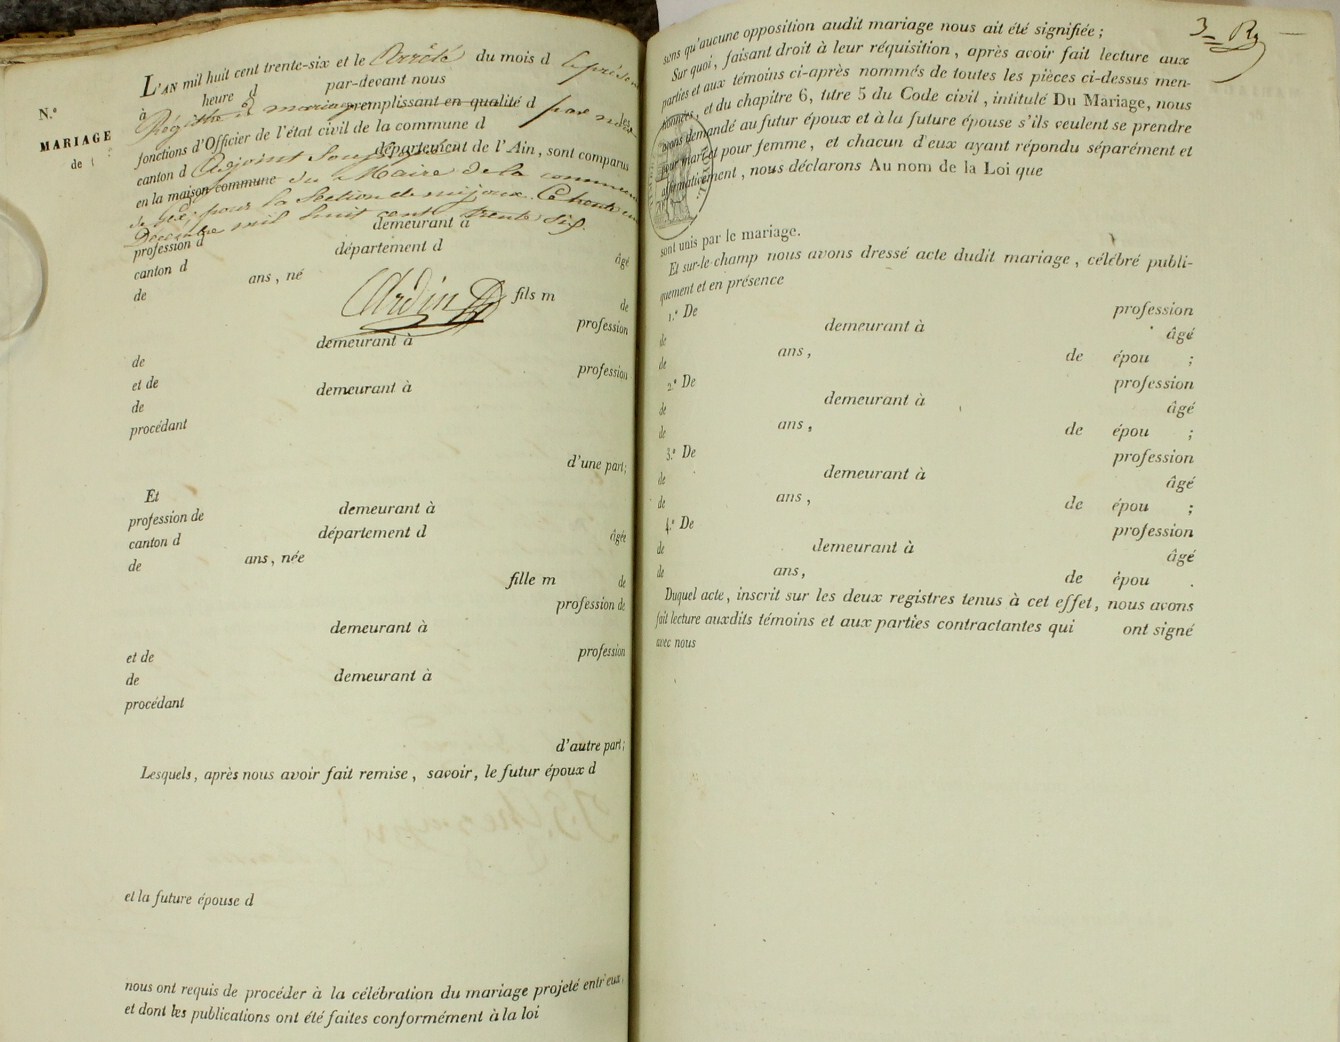 L'AN mil huit cent trente-six et le Arrêté du mois d le présent
à heure d par-devant nous
Régitre d mariage remplissant en qualité d par nous les
fonctions d'Officier de l'état civil de la commune d
canton d Adjoint soussigné département de l'Ain, sont comparus
en la maison commune du Maire de la commune
de Gex, pour la section de mijoux. Le trente un
Décembre mil huit cent trente six.
N.º
MARIAGE
de
profession d demeurant à
canton d département d âgé
de ans, né
Ardin
fils m de
profession
de demeurant à
et de profession
de demeurant à
procédant
d'une part;
Et
profession de demeurant à
canton d département d âgée
de ans, née
fille m de
profession de
demeurant à
et de profession
de demeurant à
procédant
d'autre part;
Lesquels, après nous avoir fait remise, savoir, le futur époux d
et la future épouse d
nous ont requis de procéder à la célébration du mariage projeté entr'eux,
et dont les publications ont été faites conformément à la loi
3 Rg
sans qu'aucune opposition audit mariage nous ait été signifiée;
Sur quoi, faisant droit à leur réquisition, après avoir fait lecture aux
parties et aux témoins ci-après nommés de toutes les pièces ci-dessus men-
tionnées, et du chapitre 6, titre 5 du Code civil, intitulé Du Mariage, nous
avons demandé au futur époux et à la future épouse s'ils veulent se prendre
pour mari et pour femme, et chacun d'eux ayant répondu séparément et
affirmativement, nous déclarons Au nom de la Loi que
sont unis par le mariage.
Et sur-le-champ nous avons dressé acte dudit mariage, célébré publi-
quement et en présence
1.º De profession
de demeurant à âgé
de ans, de épou ;
2.º De profession
de demeurant à âgé
de ans, de épou ;
3.º De profession
de demeurant à âgé
de ans, de épou ;
4.º De profession
de demeurant à âgé
de ans, de épou .
Duquel acte, inscrit sur les deux registres tenus à cet effet, nous avons
fait lecture auxdits témoins et aux parties contractantes qui ont signé
avec nous